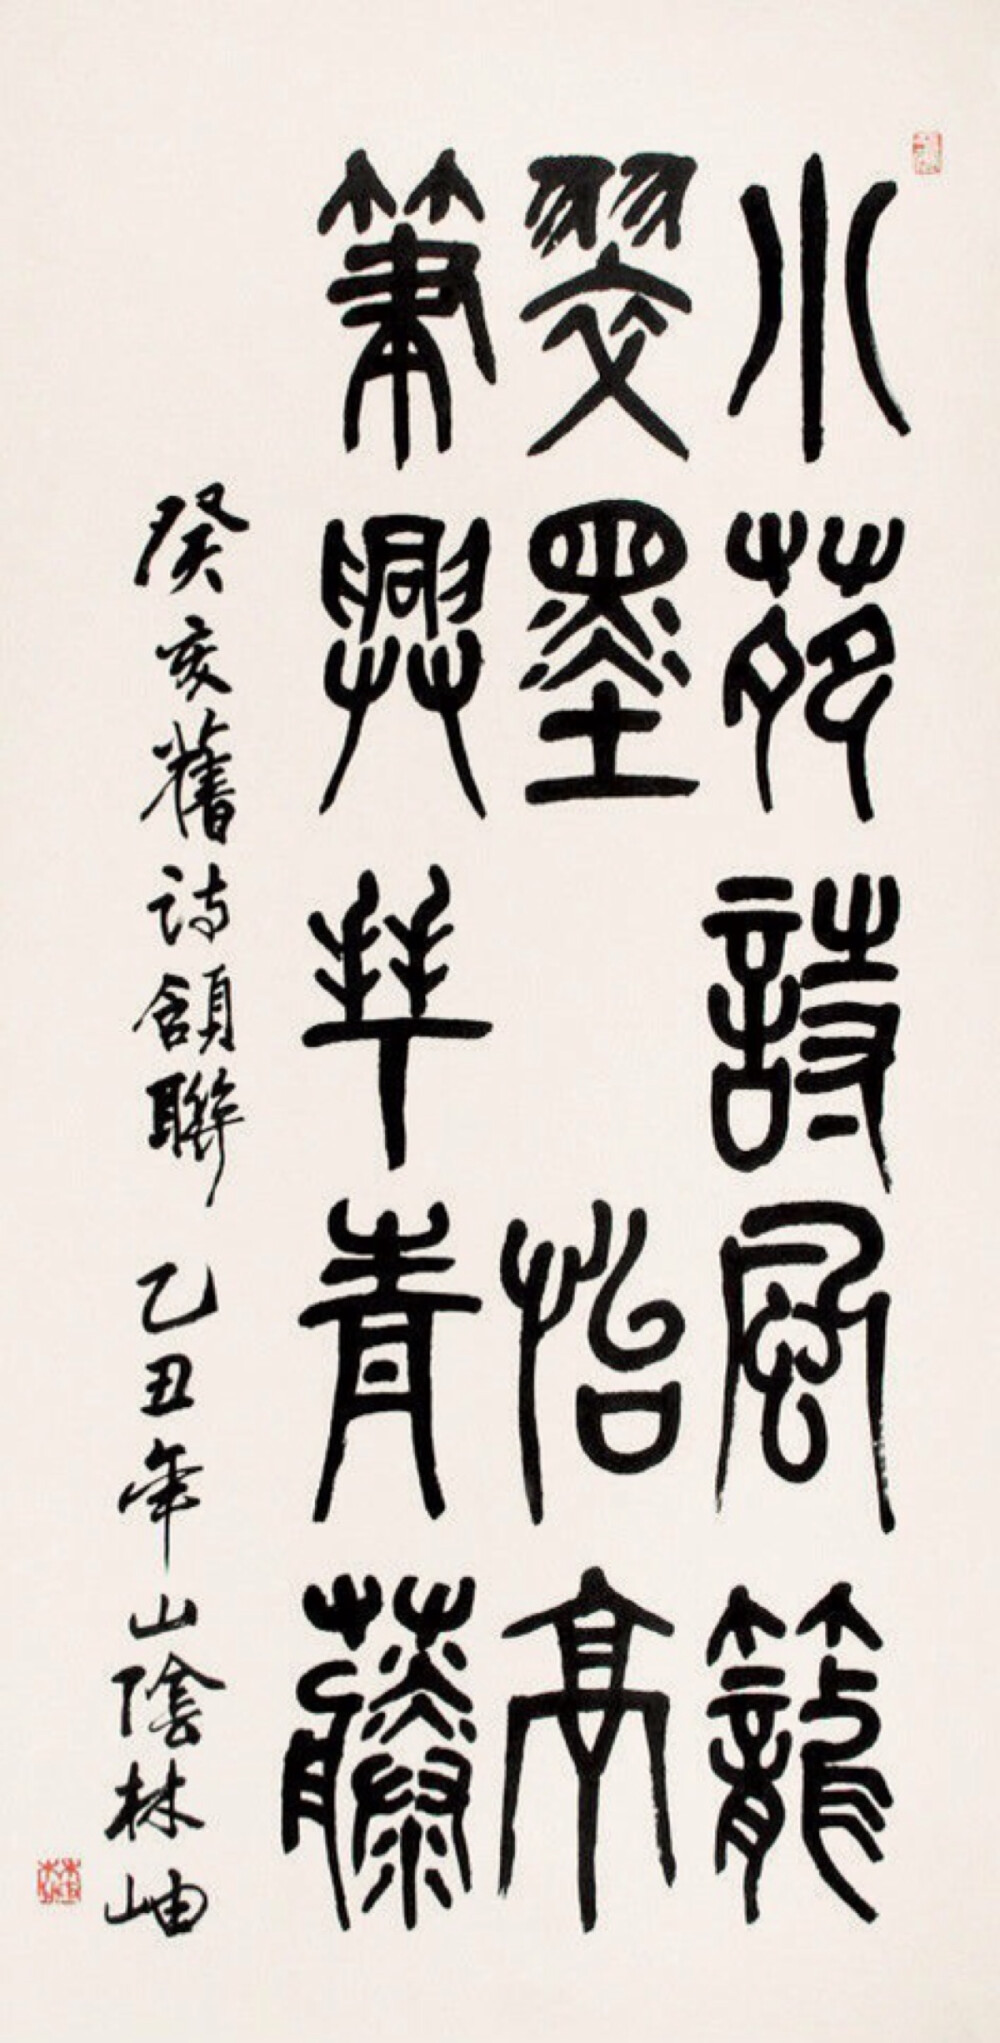 小苑詩風籠
翠墨怡亭
筆興青藤
癸亥舊詩頷聯 乙丑年山陰林岫